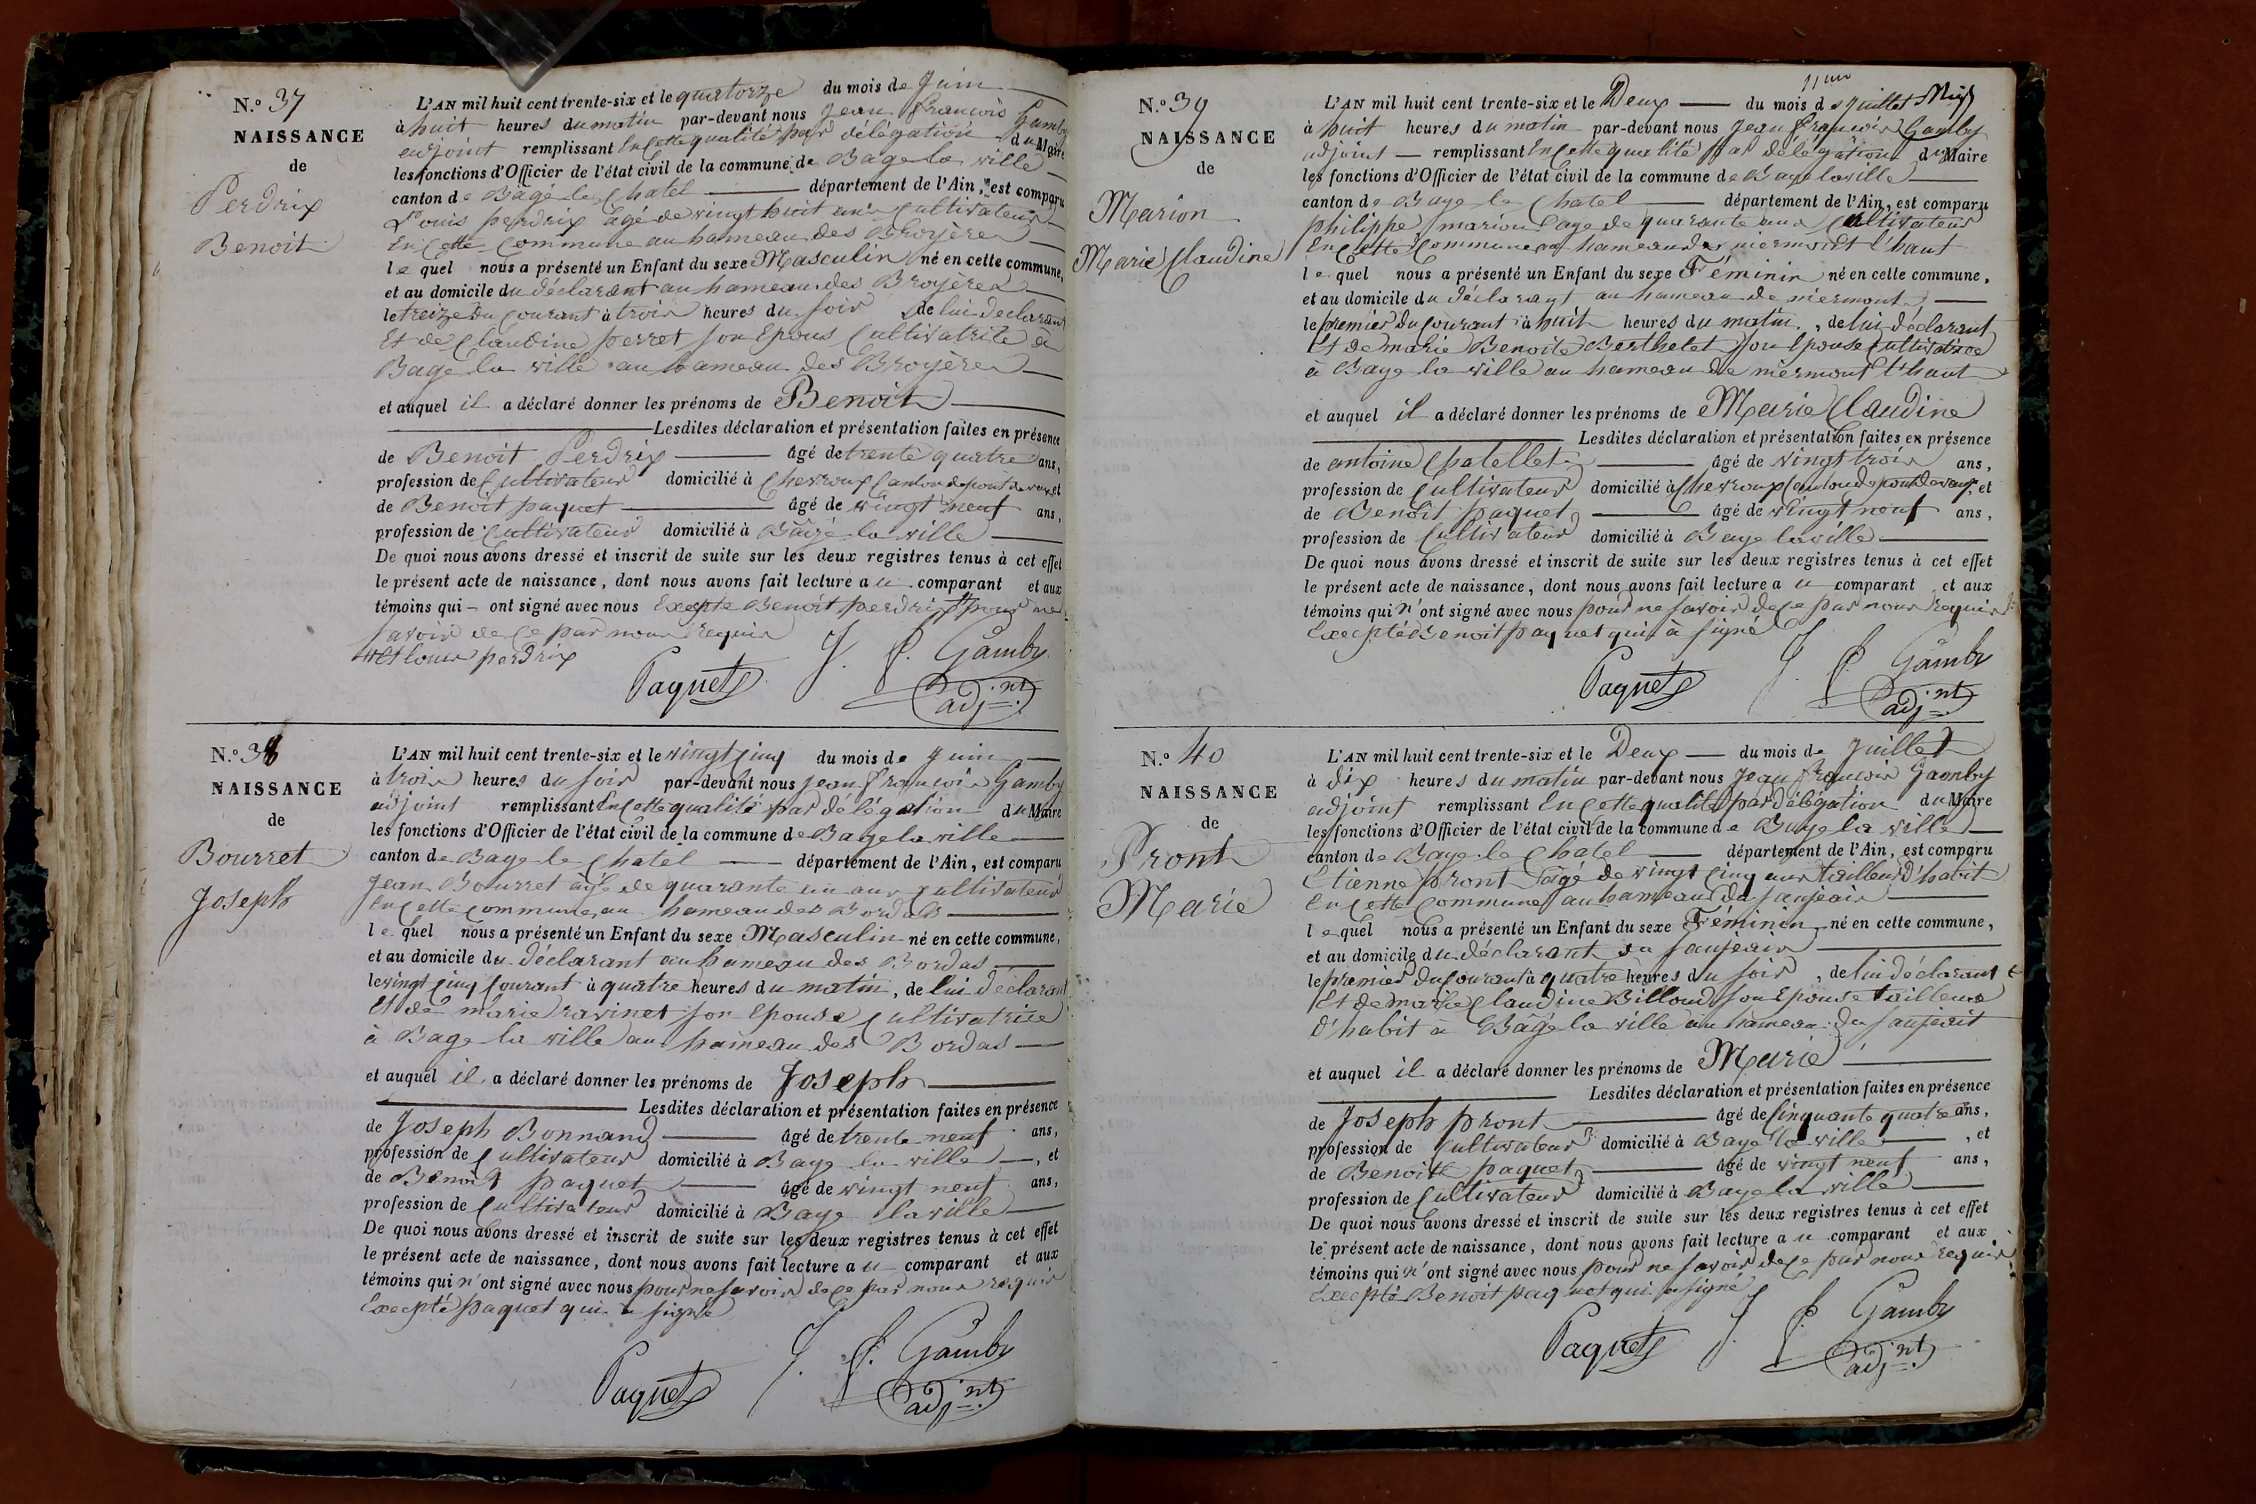 N.º 37
NAISSANCE
de
Perdrix
Benoit
L'AN mil huit cent trente-six et le quatorze du mois de Juin
à huit heures du matin par-devant nous Jean François Gamby
adjoint remplissant En cette qualité par délégation du Maire
les fonctions d'Officier de l'état civil de la commune de Bagé la ville
canton de Bagé le Chatel département de l'Ain, est comparu
Louis perdrix âgé de vingt huit ans Cultivateur
En cette Commune au hameau des Broyères
lequel nous a présenté un Enfant du sexe Masculin né en cette commune,
et au domicile du déclarant au hameau des Broyères
le treize du Courant à trois heures du soir de lui déclarant
Et de Claudine perret son Epouse Cultivatrice à
Bage la ville au hameau des Broyères
et auquel il a déclaré donner les prénoms de Benoit
Lesdites déclaration et présentation faites en présence
de Benoit Perdrix âgé de trente quatre ans,
profession de Cultivateur domicilié à Chevroux Canton de pont de vaux et
de Benoit paquet âgé de vingt neuf ans,
profession de Cultivateur domicilié à Bagé la ville
De quoi nous avons dressé et inscrit de suite sur les deux registres tenus à cet effet
le présent acte de naissance, dont nous avons fait lecture au comparant et aux
témoins qui ont signé avec nous Excepte Benoit perdrix pour ne
savoir de ce par nous requis
et louis perdrix
Paquet J. F. Gamby
adj.nt
N.º 38
NAISSANCE
de
Bourret
Joseph
L'AN mil huit cent trente-six et le vingt cinq du mois de Juin
à trois heures du soir par-devant nous Jean François Gamby
adjoint remplissant En cette qualité par délégation du Maire
les fonctions d'Officier de l'état civil de la commune de Bage la ville
canton de Bage le Chatel département de l'Ain, est comparu
Jean Bourret âgé de quarante un ans Cultivateur
En cette commune au hameau des Bordas
lequel nous a présenté un Enfant du sexe Masculin né en cette commune,
et au domicile du déclarant au hameau des Bordas
le vingt cinq Courant à quatre heures du matin, de lui déclarant
Et de marie ravinet son Epouse Cultivatrice
à Bage la ville au hameau des Bordas
et auquel il a déclaré donner les prénoms de Joseph
Lesdites déclaration et présentation faites en présence
de Joseph Bonnand âgé de trente neuf ans,
profession de Cultivateur domicilié à Bage la ville, et
de Benoit paquet âgé de vingt neuf ans,
profession de Cultivateur domicilié à Bage la ville
De quoi nous avons dressé et inscrit de suite sur les deux registres tenus à cet effet
le présent acte de naissance, dont nous avons fait lecture au comparant et aux
témoins qui n'ont signé avec nous pour ne savoir de ce par nous requis
Excepté paquet qui a signé
Paquet J. F. Gamby
adj.nt
N.º 39
NAISSANCE
de
Marion
Marie Claudine
L'AN mil huit cent trente-six et le Deux du mois de juillet
à huit heures du matin par-devant nous Jean François Gamby
adjoint remplissant En cette qualité par délégation du Maire
les fonctions d'Officier de l'état civil de la commune de Bage la ville
canton de Bage le Chatel département de l'Ain, est comparu
philippe marion âge de quarante ans Cultivateur
En cette Commune au hameau de niermont l'haut
lequel nous a présenté un Enfant du sexe Féminin né en cette commune,
et au domicile du déclarant au hameau de niermont
le premier du Courant à huit heures du matin, de lui déclarant
Et de marie Benoite Berthelet son Epouse Cultivatrice
à Bage la ville au hameau de niermont l'haut
et auquel il a déclaré donner les prénoms de Marie Claudine
Lesdites déclaration et présentation faites en présence
de antoine Chatellet âgé de vingt trois ans,
profession de Cultivateur domicilié à Chevroux Canton de pont de vaux, et
de Benoit paquet âgé de vingt neuf ans,
profession de Cultivateur domicilié à Bage la ville
De quoi nous avons dressé et inscrit de suite sur les deux registres tenus à cet effet
le présent acte de naissance, dont nous avons fait lecture au comparant et aux
témoins qui n'ont signé avec nous pour ne savoir de ce par nous requis
Excepté Benoit paquet qui à signé
Paquet J. F. Gamby
adj.nt
N.º 40
NAISSANCE
de
Pront
Marie
L'AN mil huit cent trente-six et le Deux du mois de Juillet
à dix heures du matin par-devant nous Jean François Gamby
adjoint remplissant En cette qualité par délégation du Maire
les fonctions d'Officier de l'état civil de la commune de Bage la ville
canton de Bage le Chatel département de l'Ain, est comparu
Etienne pront âgé de vingt cinq ans tailleur d'habit
En cette Commune au hameau du saujeair
lequel nous a présenté un Enfant du sexe Féminin né en cette commune,
et au domicile du déclarant
le premier du Courant à quatre heures du soir, de lui déclarant
Et de marie Claudine Billoud son Epouse tailleuse
d'habit a Bâgé la ville au hameau du
et auquel il a déclaré donner les prénoms de Marie
Lesdites déclaration et présentation faites en présence
de Joseph pront âgé de Cinquante quatre ans,
profession de Cultivateur domicilié à Bage la ville, et
de Benoit paquet âgé de vingt neuf ans,
profession de Cultivateur domicilié à Bage la ville
De quoi nous avons dressé et inscrit de suite sur les deux registres tenus à cet effet
le présent acte de naissance, dont nous avons fait lecture au comparant et aux
témoins qui n'ont signé avec nous pour ne savoir de ce par nous requis
Excepté Benoit paquet qui a signé
Paquet J. F. Gamby
adj.nt